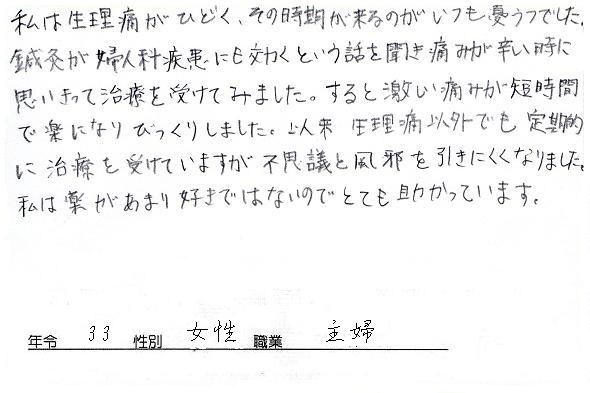 私は生理痛がひどく、その時期が来るのがいつも憂うつでした。
鍼灸が婦人科疾患にも効くという話を聞き痛みが辛い時に
思いきって治療を受けてみました。すると激しい痛みが短時間
で楽になりびっくりしました。以来 生理痛以外でも定期的
に治療を受けていますが不思議と風邪を引きにくくなりました。
私は薬があまり好きではないのでとても助かっています。
年令 33 性別 女性 職業 主婦